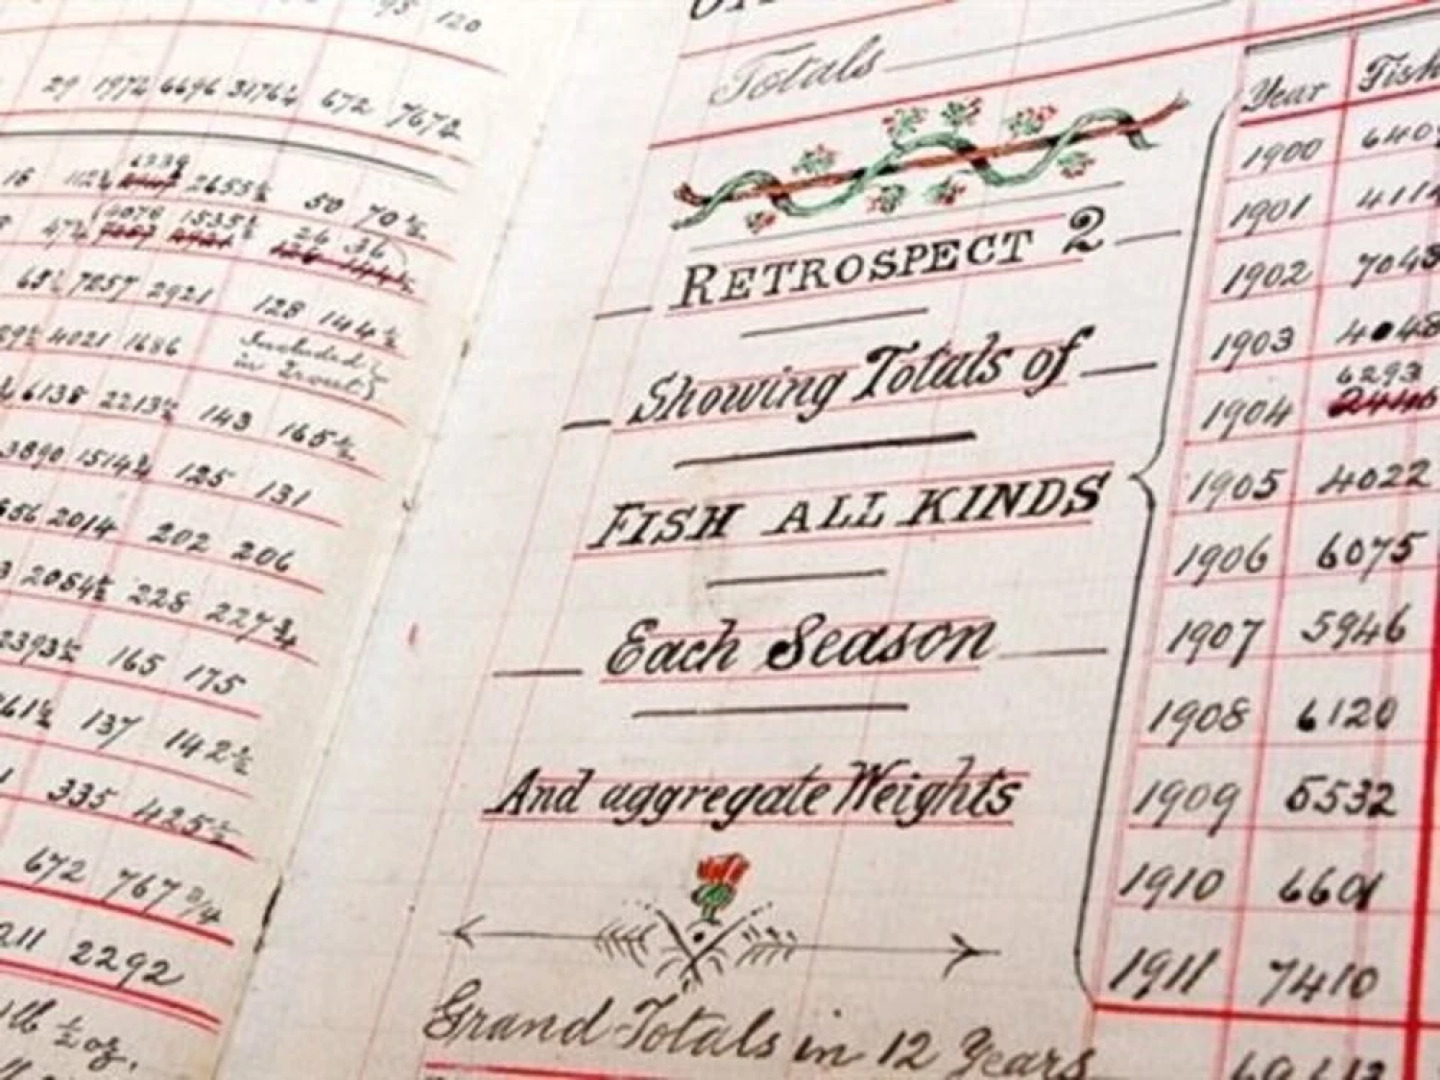 120
29 1972 6696 3176¼ 672 767¾
6239
16 112½ 2655½ 50 70¾
4076 1535½ 26 36
47½
68½ 7257 2921 128 144½
4021 1686 Included
in Trout
6138 2213½ 143 165½
3890 1514¾ 125 131
2014 202 206
2084½ 228 227¾
2393½ 165 175
137 142½
335 425½
672 767 3/4
211 2292
½ oz.
Totals
RETROSPECT 2
Showing Totals of
FISH ALL KINDS
Each Season
And aggregate Weights
Grand Totals in 12 Years
Year Fish
1900 640
1901 411
1902 7043
1903 4048
6293
1904 2446
1905 4022
1906 6075
1907 5946
1908 6120
1909 5532
1910 6601
1911 7410